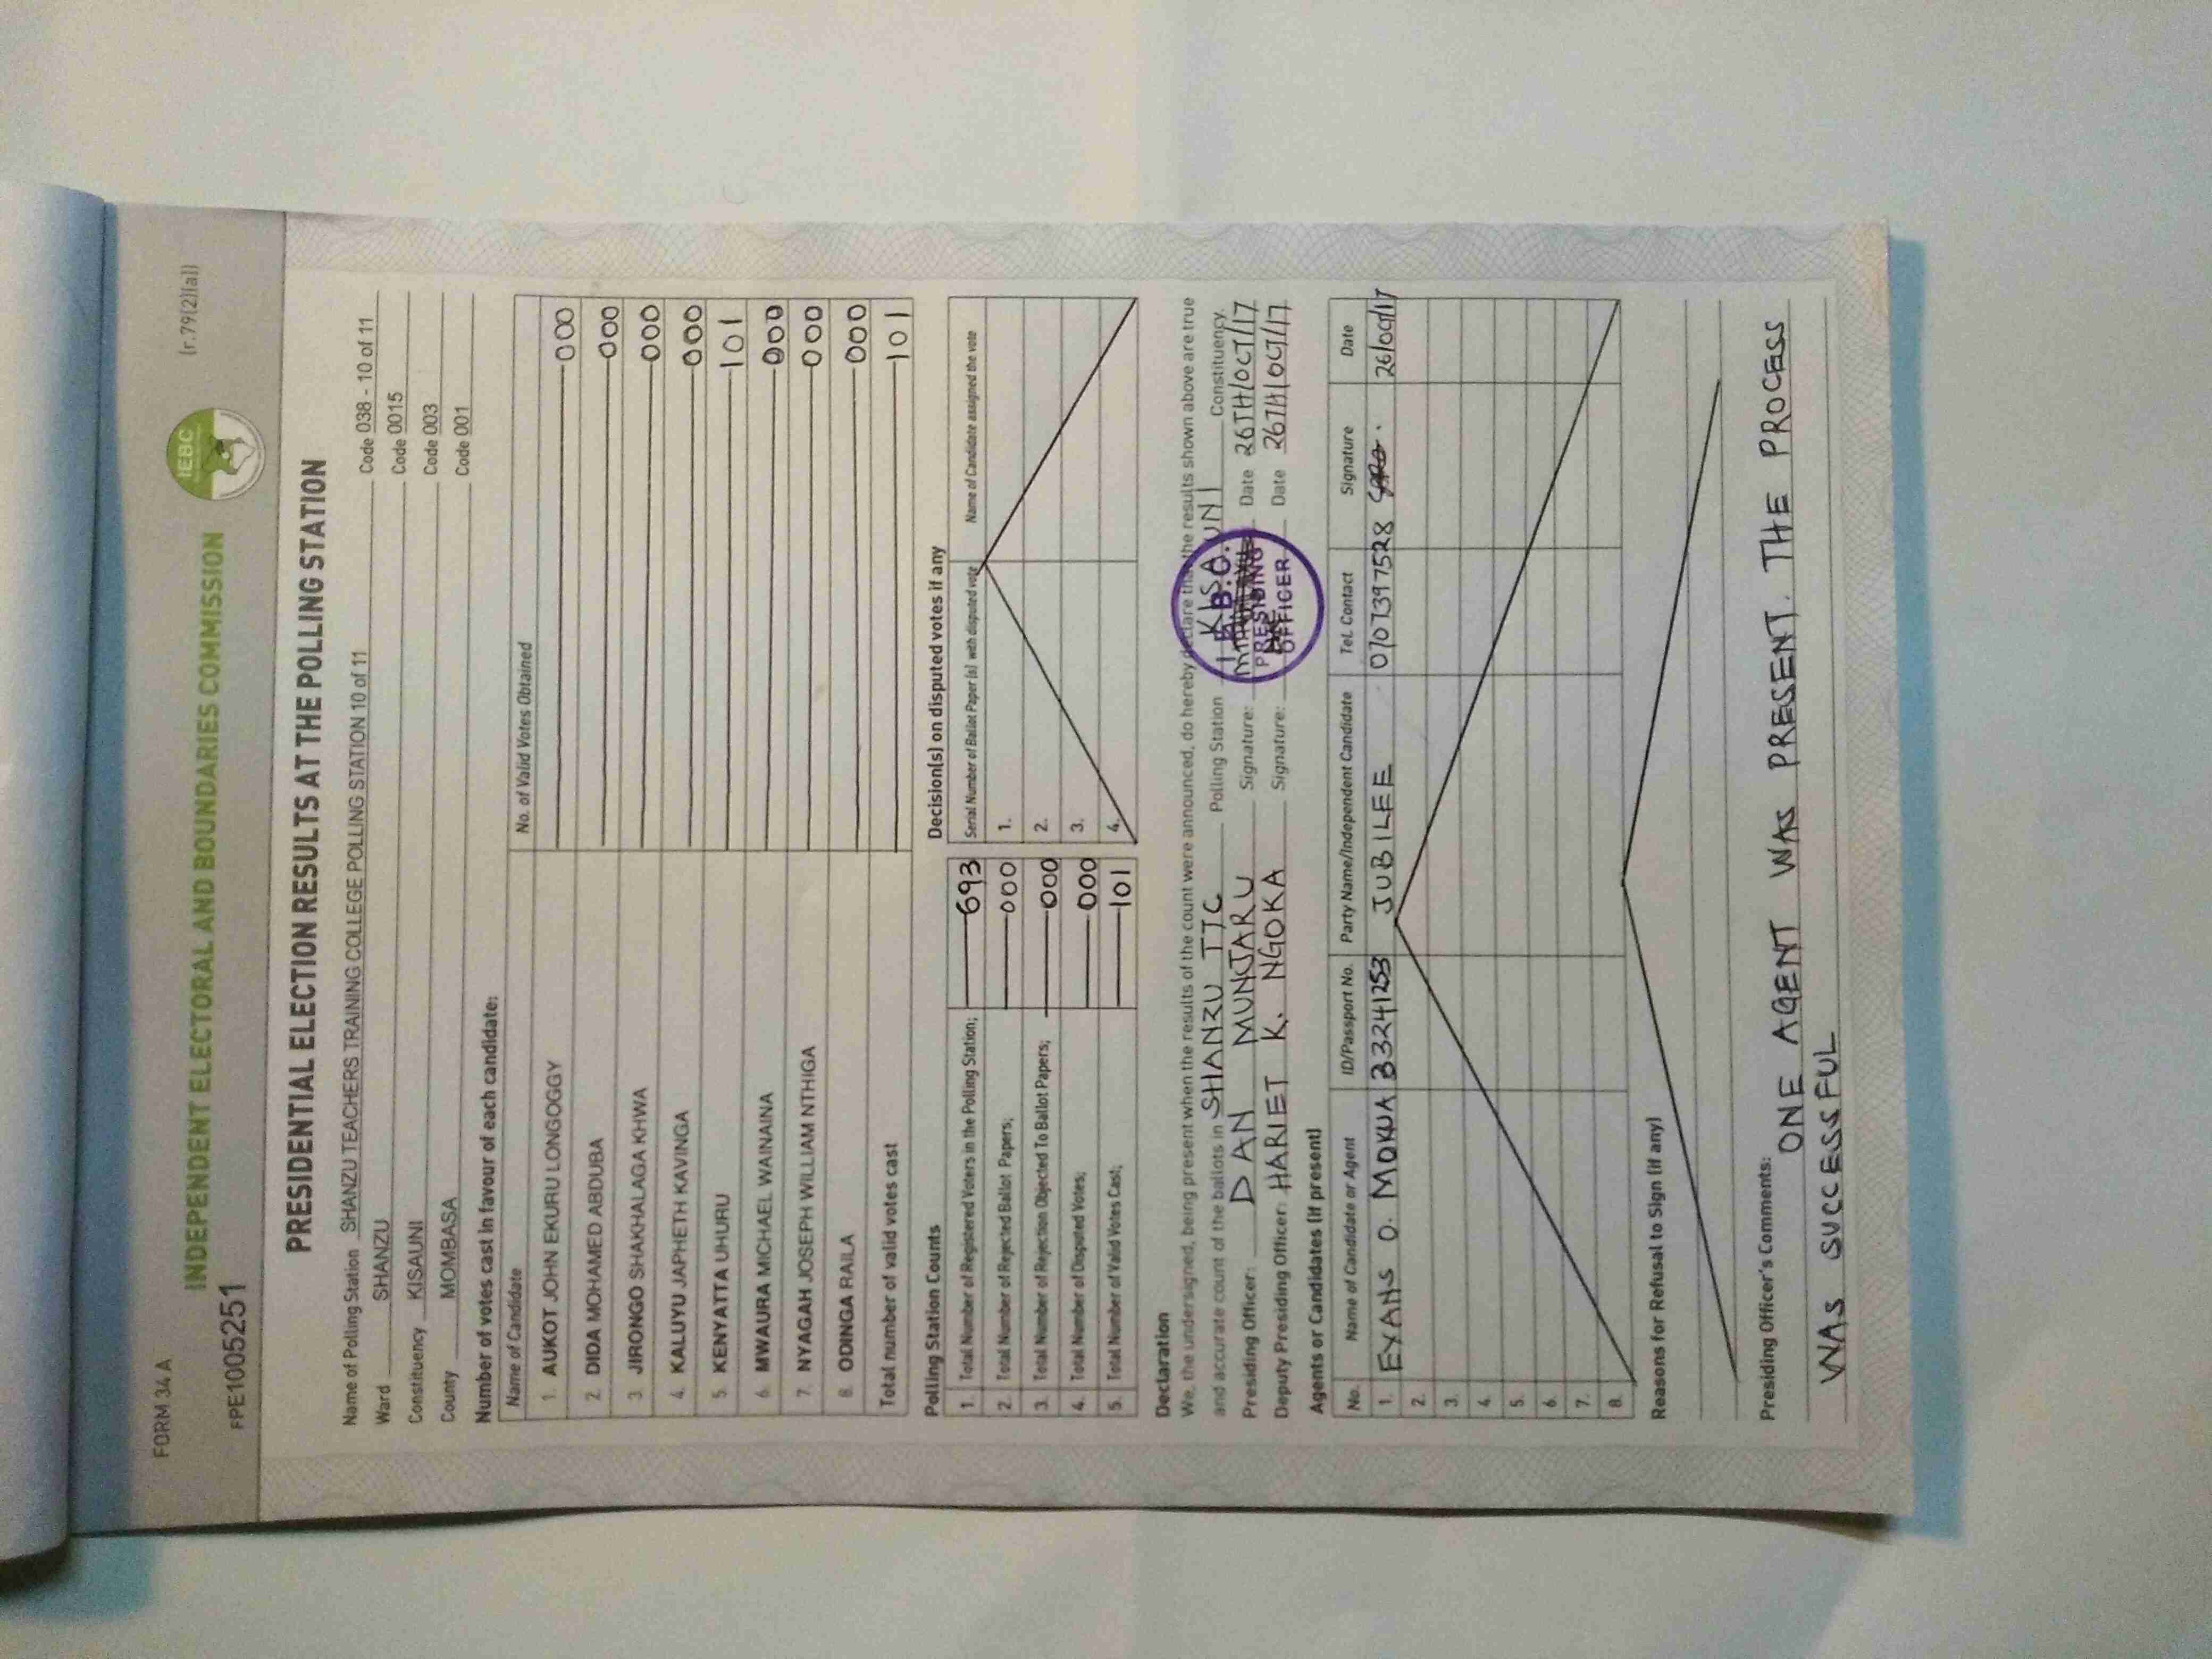 FORM 34 A
(r.79(2)(a))
INDEPENDENT ELECTORAL AND BOUNDARIES COMMISSION
IEBC
FPE1005251
PRESIDENTIAL ELECTION RESULTS AT THE POLLING STATION
Name of Polling Station SHANZU TEACHERS TRAINING COLLEGE POLLING STATION 10 of 11 Code 038 - 10 of 11
Ward SHANZU Code 0015
Constituency KISAUNI Code 003
County MOMBASA Code 001
Number of votes cast in favour of each candidate:
Name of Candidate No. of Valid Votes Obtained
1. AUKOT JOHN EKURU LONGOGGY 000
2. DIDA MOHAMED ABDUBA 000
3. JIRONGO SHAKHALAGA KHWA 000
4. KALUYU JAPHETH KAVINGA 000
5. KENYATTA UHURU 101
6. MWAURA MICHAEL WAINAINA 000
7. NYAGAH JOSEPH WILLIAM NTHIGA 000
8. ODINGA RAILA 000
Total number of valid votes cast 101
Polling Station Counts
1. Total Number of Registered Voters in the Polling Station; 693
2. Total Number of Rejected Ballot Papers; 000
3. Total Number of Rejection Objected To Ballot Papers; 000
4. Total Number of Disputed Votes; 000
5. Total Number of Valid Votes Cast; 101
Decision(s) on disputed votes if any
Serial Number of Ballot Paper (s) with disputed vote Name of Candidate assigned the vote
1.
2.
3.
4.
Declaration
We, the undersigned, being present when the results of the count were announced, do hereby declare that the results shown above are true
and accurate count of the ballots in SHANZU TTC Polling Station KISAUNI Constituency.
Presiding Officer: DAN MUNJARU Signature: Date 26TH/OCT/17
Deputy Presiding Officer: HARIET K. NGOKA Signature: Date 26TH/OCT/17
I.E.B.C.
PRESIDING
OFFICER
Agents or Candidates (if present)
No. Name of Candidate or Agent ID/Passport No. Party Name/Independent Candidate Tel. Contact Signature Date
1. EVANS O. MOKUA 33241253 JUBILEE 0707397528 26/09/17
2.
3.
4.
5.
6.
7.
8.
Reasons for Refusal to Sign (if any)
Presiding Officer's Comments:
ONE AGENT WAS PRESENT. THE PROCESS
WAS SUCCESSFUL